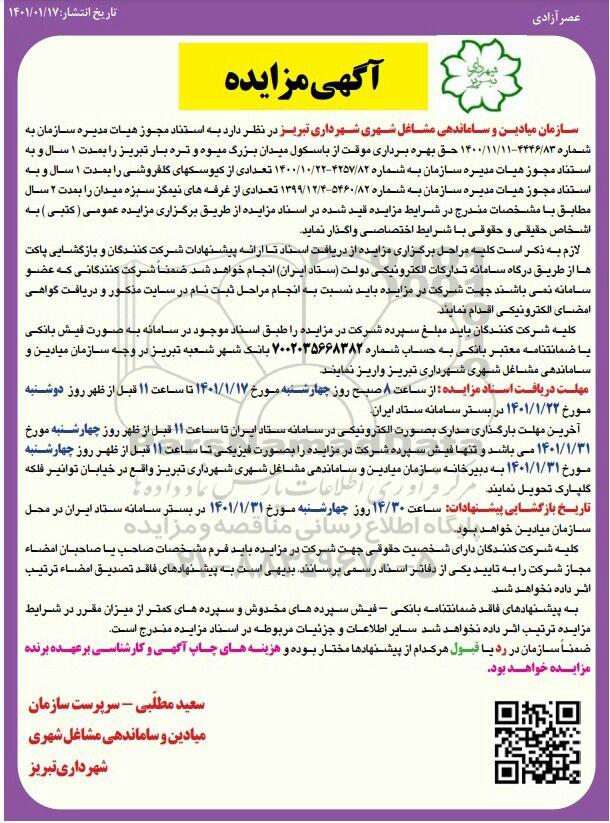 عصر آزادی
تاریخ انتشار: ۱۴۰۱/۰۱/۱۷
شهرداری تبریز
آگهی مزایده
سازمان میادین و ساماندهی مشاغل شهری شهرداری تبریز در نظر دارد به استناد مجوز هیات مدیره سازمان به
شماره ۴۴۴۶/۸۳-۱۴۰۰/۱۱/۱۱ حق بهره برداری موقت از باسکول میدان بزرگ میوه و تره بار تبریز را بمدت ۱ سال و به
استناد مجوز هیات مدیره سازمان به شماره ۴۲۵۷/۸۲-۱۴۰۰/۱۰/۲۲ تعدادی از کیوسکهای گلفروشی را بمدت ۱ سال و به
استناد مجوز هیات مدیره سازمان به شماره ۵۴۶۰/۸۲-۱۳۹۹/۱۲/۴ تعدادی از غرفه های نیمگز سبزه میدان را بمدت ۲ سال
مطابق با مشخصات مندرج در شرایط مزایده قید شده در اسناد مزایده از طریق برگزاری مزایده عمومی ( کتبی ) به
اشخاص حقیقی و حقوقی با شرایط اختصاصی واگذار نماید.
لازم به ذکر است کلیه مراحل برگزاری مزایده از دریافت اسناد تا ارائه پیشنهادات شرکت کنندگان و بازگشایی پاکت
ها از طریق درگاه سامانه تدارکات الکترونیکی دولت (ستاد ایران) انجام خواهد شد. ضمناً شرکت کنندگانی که عضو
سامانه نمی باشند جهت شرکت در مزایده باید نسبت به انجام مراحل ثبت نام در سایت مذکور و دریافت گواهی
امضای الکترونیکی اقدام نمایند.
کلیه شرکت کنندگان باید مبلغ سپرده شرکت در مزایده را طبق اسناد موجود در سامانه به صورت فیش بانکی
یا ضمانتنامه معتبر بانکی به حساب شماره ۷۰۰۲۰۳۵۶۶۸۳۸۲ بانک شهر شعبه تبریز در وجه سازمان میادین و
ساماندهی مشاغل شهری شهرداری تبریز واریز نمایند.
مهلت دریافت اسناد مزایده : از ساعت ۸ صبح روز چهارشنبه مورخ ۱۴۰۱/۱/۱۷ تا ساعت ۱۱ قبل از ظهر روز دوشنبه
مورخ ۱۴۰۱/۱/۲۲ در بستر سامانه ستاد ایران.
آخرین مهلت بارگذاری مدارک بصورت الکترونیکی در سامانه ستاد ایران تا ساعت ۱۱ قبل از ظهر روز چهارشنبه مورخ
۱۴۰۱/۱/۳۱ می باشد و تنها فیش سپرده شرکت در مزایده را بصورت فیزیکی تا ساعت ۱۱ قبل از ظهر روز چهارشنبه
مورخ ۱۴۰۱/۱/۳۱ به دبیرخانه سازمان میادین و ساماندهی مشاغل شهری شهرداری تبریز واقع در خیابان توانیر فلکه
گلپارک تحویل نمایند.
تاریخ بازگشایی پیشنهادات: ساعت ۱۴/۳۰ روز چهارشنبه مورخ ۱۴۰۱/۱/۳۱ در بستر سامانه ستاد ایران در محل
سازمان میادین خواهد بود.
کلیه شرکت کنندگان دارای شخصیت حقوقی جهت شرکت در مزایده باید فرم مشخصات صاحب یا صاحبان امضاء
مجاز شرکت را به تایید یکی از دفاتر اسناد رسمی برسانند. بدیهی است به پیشنهادهای فاقد تصدیق امضاء ترتیب
اثر داده نخواهد شد.
به پیشنهادهای فاقد ضمانتنامه بانکی – فیش سپرده های مخدوش و سپرده های کمتر از میزان مقرر در شرایط
مزایده ترتیب اثر داده نخواهد شد سایر اطلاعات و جزئیات مربوطه در اسناد مزایده مندرج است.
ضمناً سازمان در رد یا قبول هرکدام از پیشنهادها مختار بوده و هزینه های چاپ آگهی و کارشناسی برعهده برنده
مزایده خواهد بود.
سعید مطلّبی – سرپرست سازمان
میادین و ساماندهی مشاغل شهری
شهرداری تبریز